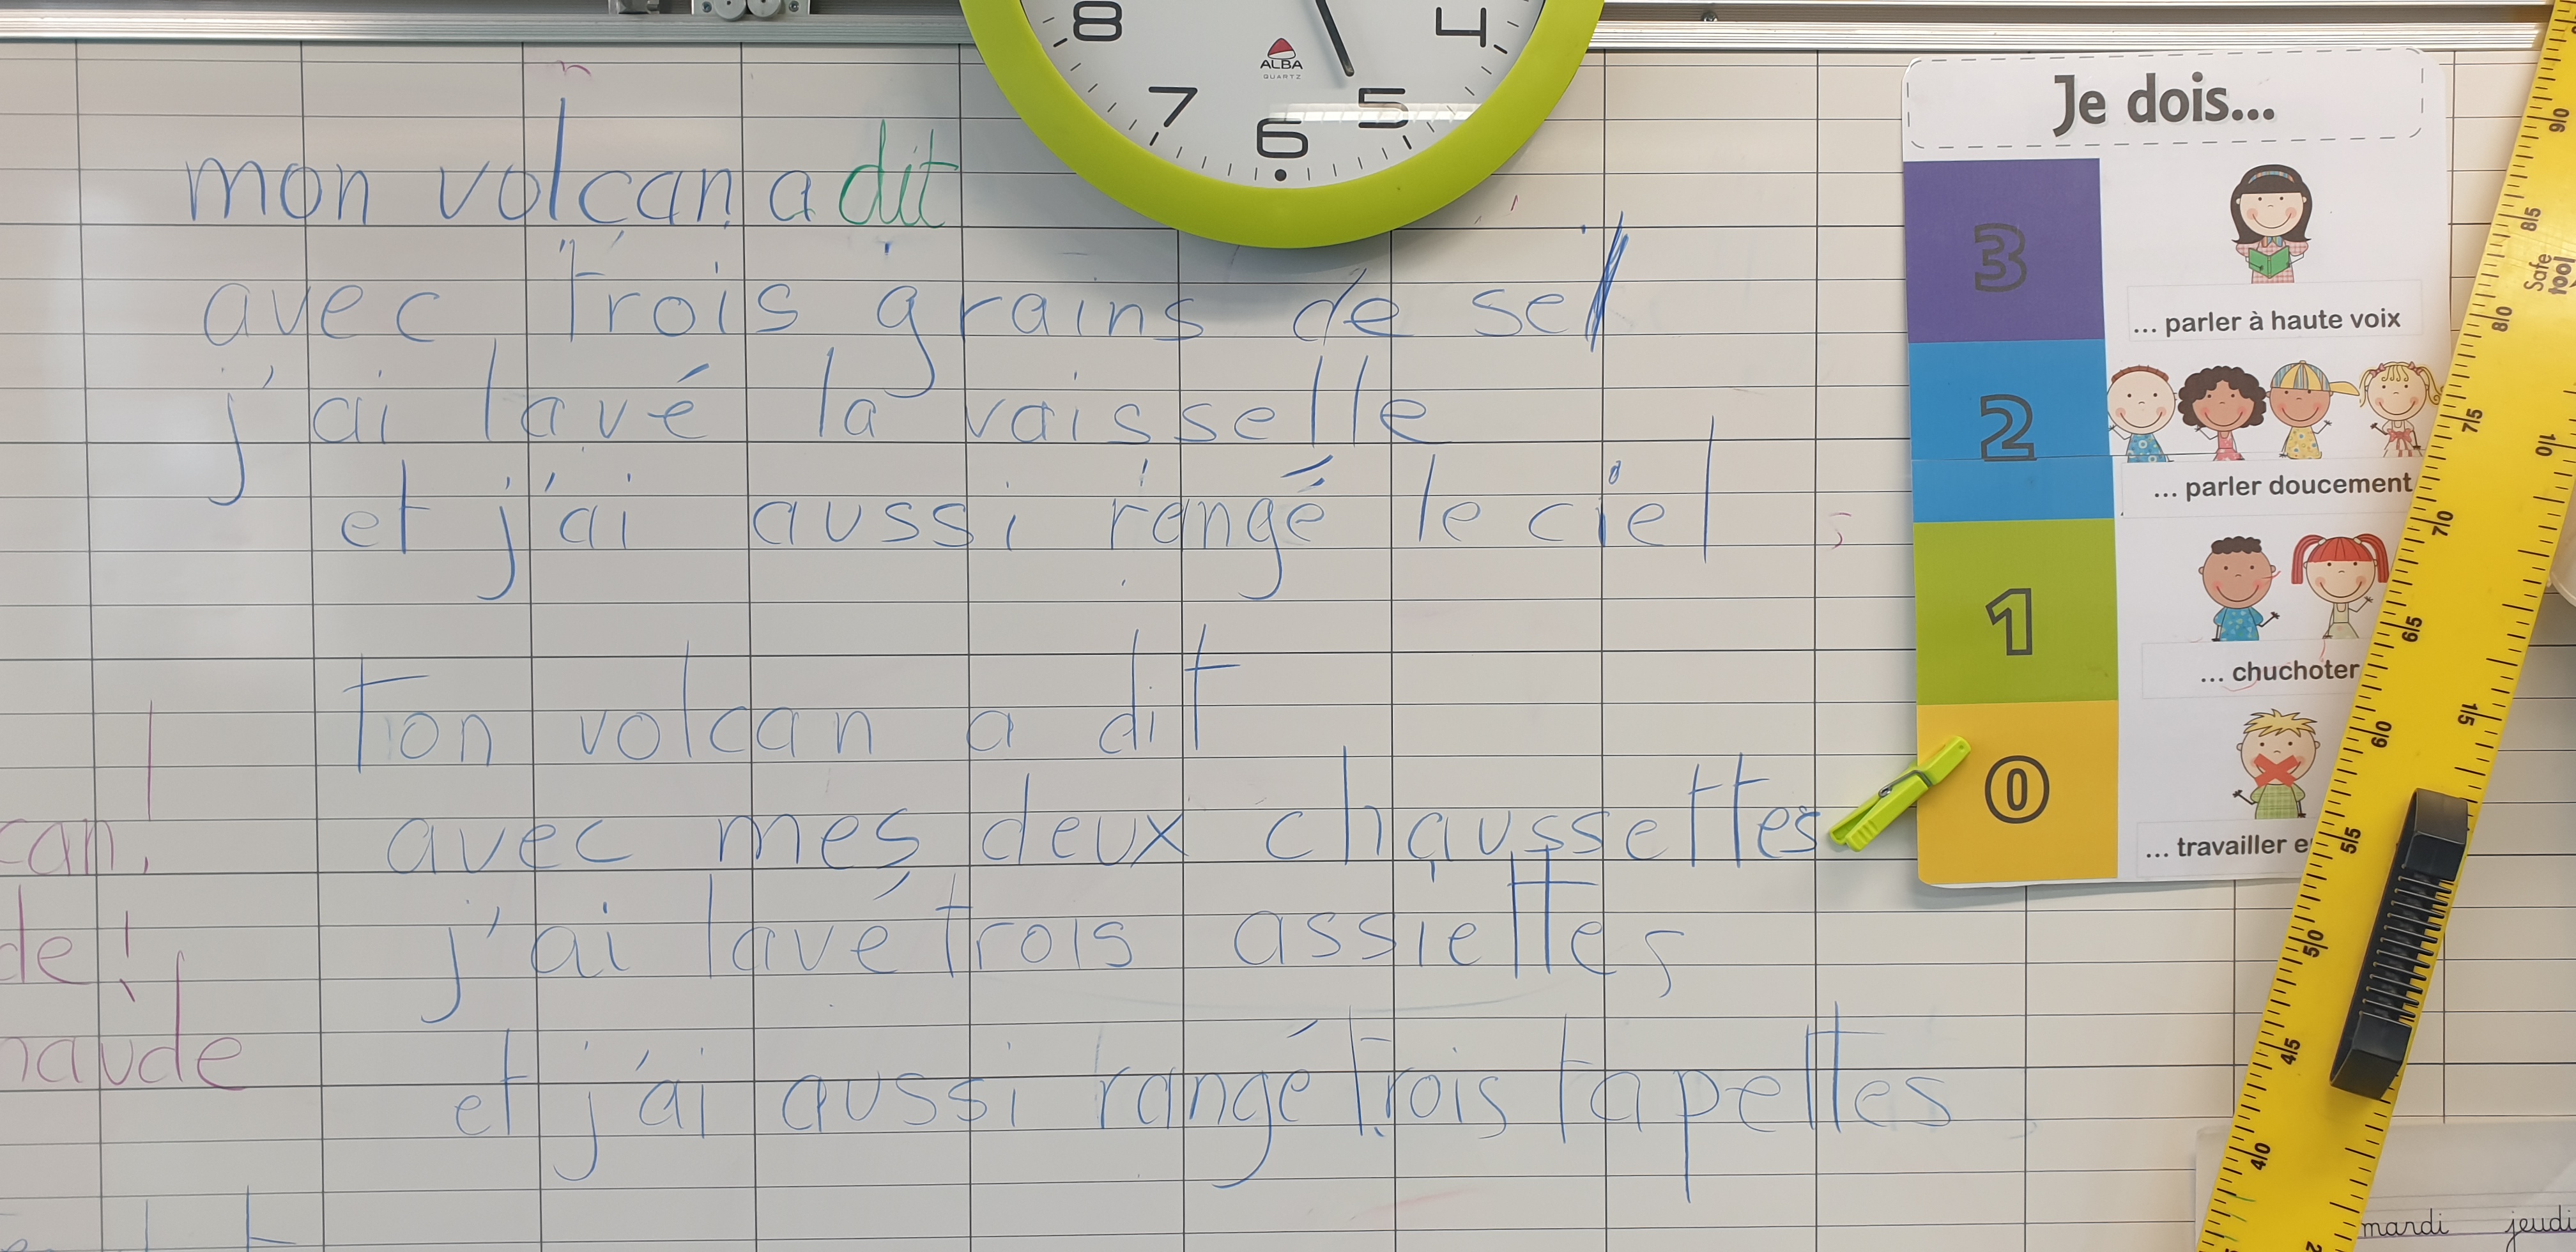 8
4
ALBA
QUARTZ
7
5
6
mon volcan a dit
avec trois grains de sel
j'ai lavé la vaisselle
et j'ai aussi rangé le ciel
ton volcan a dit
avec mes deux chaussettes
j'ai lavé trois assiettes
et j'ai aussi rangé trois tapettes
can,
de !
haude
Je dois...
3
... parler à haute voix
2
... parler doucement
1
... chuchoter
0
... travailler e
90
85
Safe
tool
80
75
10
70
65
15
60
55
50
45
40
mardi jeudi